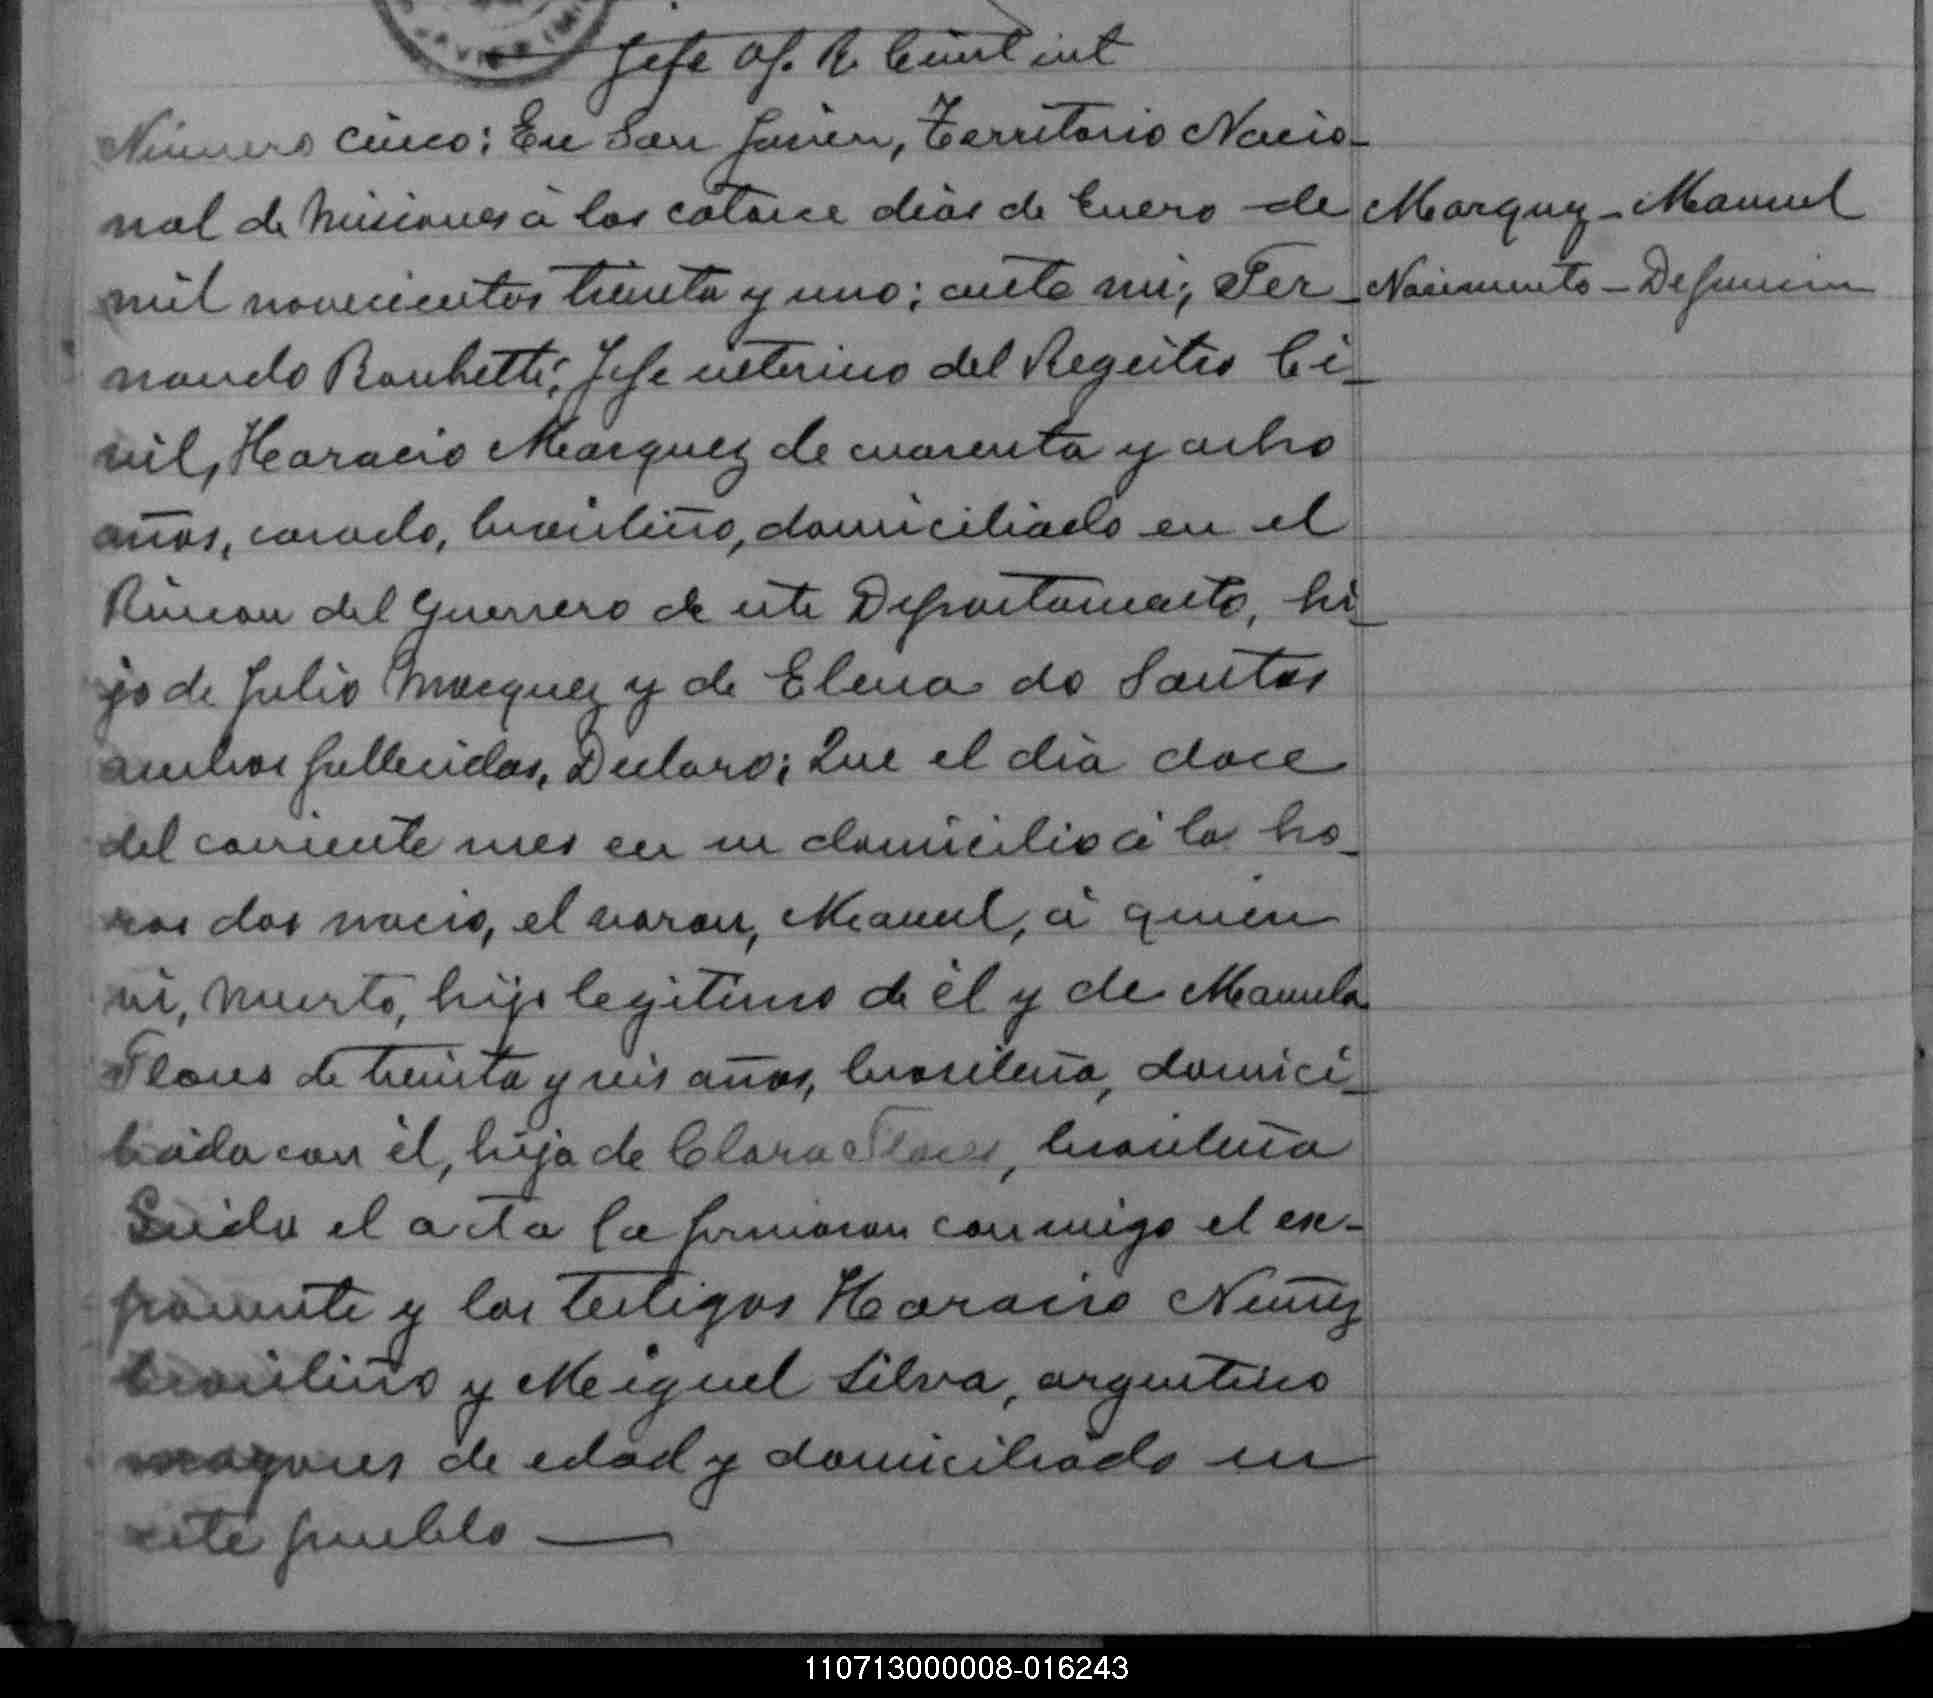 Jefe Of. R. Civil int
Número cinco: En San Javier, Territorio Nacio-
nal de Misiones á los catorce dias de Enero de
Marquez - Manuel
mil novecientos treinta y uno; ante mi; Fer-
Nacimiento - Defuncion
nando Jefe interino del Registro Ci-
vil, Horacio Marquez de cuarenta y ocho
años, casado, brasileño, domiciliado en el
Rincon del Guerrero de este Departamento, hi-
jo de Julio Marquez y de Elena do Santos
ambos fallecidos, Declaro; Que el dia doce
del corriente mes en su domicilio á la ho-
ras dos nacio, el varon, Manuel, á quien
vi, muerto, hijo legitimo de él y de Manuela
Flores de treinta y seis años, brasileña, domici-
liada con él, hija de Clara Flores, brasileña
Leida el acta la firmaron conmigo el ex-
ponente y los testigos Horacio Nuñez
brasileño y Miguel Silva, argentino
mayores de edad y domiciliado en
este pueblo
110713000008-016243